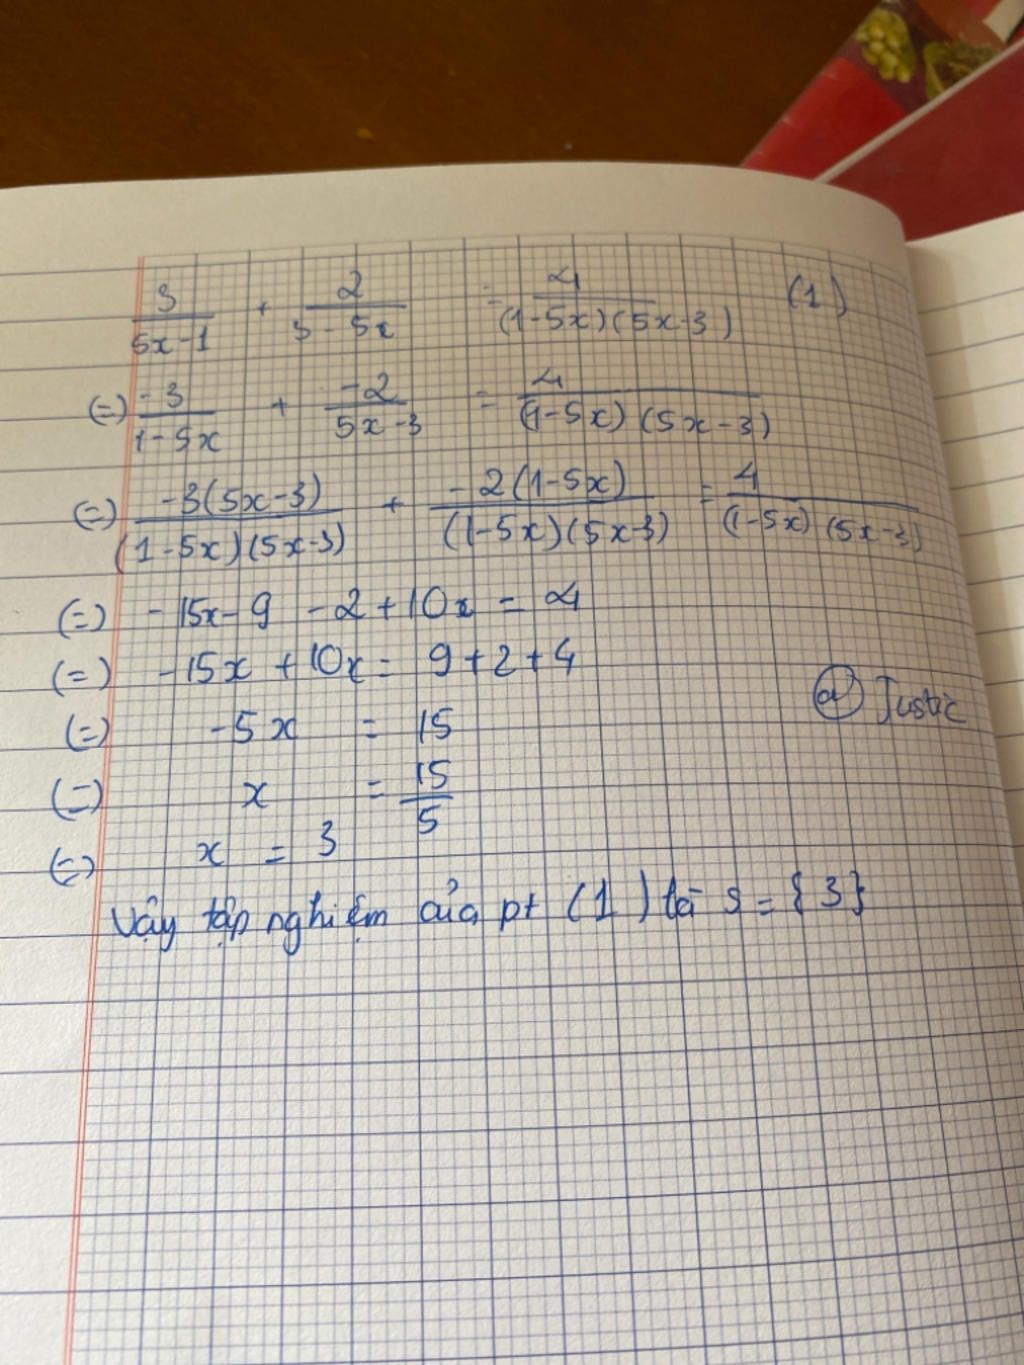 3/(5x-1) + 2/(3-5x) = 4/((1-5x)(5x-3)) (1)
(=) -3/(1-5x) + -2/(5x-3) = 4/((1-5x)(5x-3))
(=) -3(5x-3)/((1-5x)(5x-3)) + -2(1-5x)/((1-5x)(5x-3)) = 4/((1-5x)(5x-3))
(=) -15x-9 -2+10x = 4
(=) -15x+10x = 9+2+4
(=) -5x = 15
@Justic
(=) x = 15/5
(=) x = 3
Vậy tập nghiệm của pt (1) là S = {3}